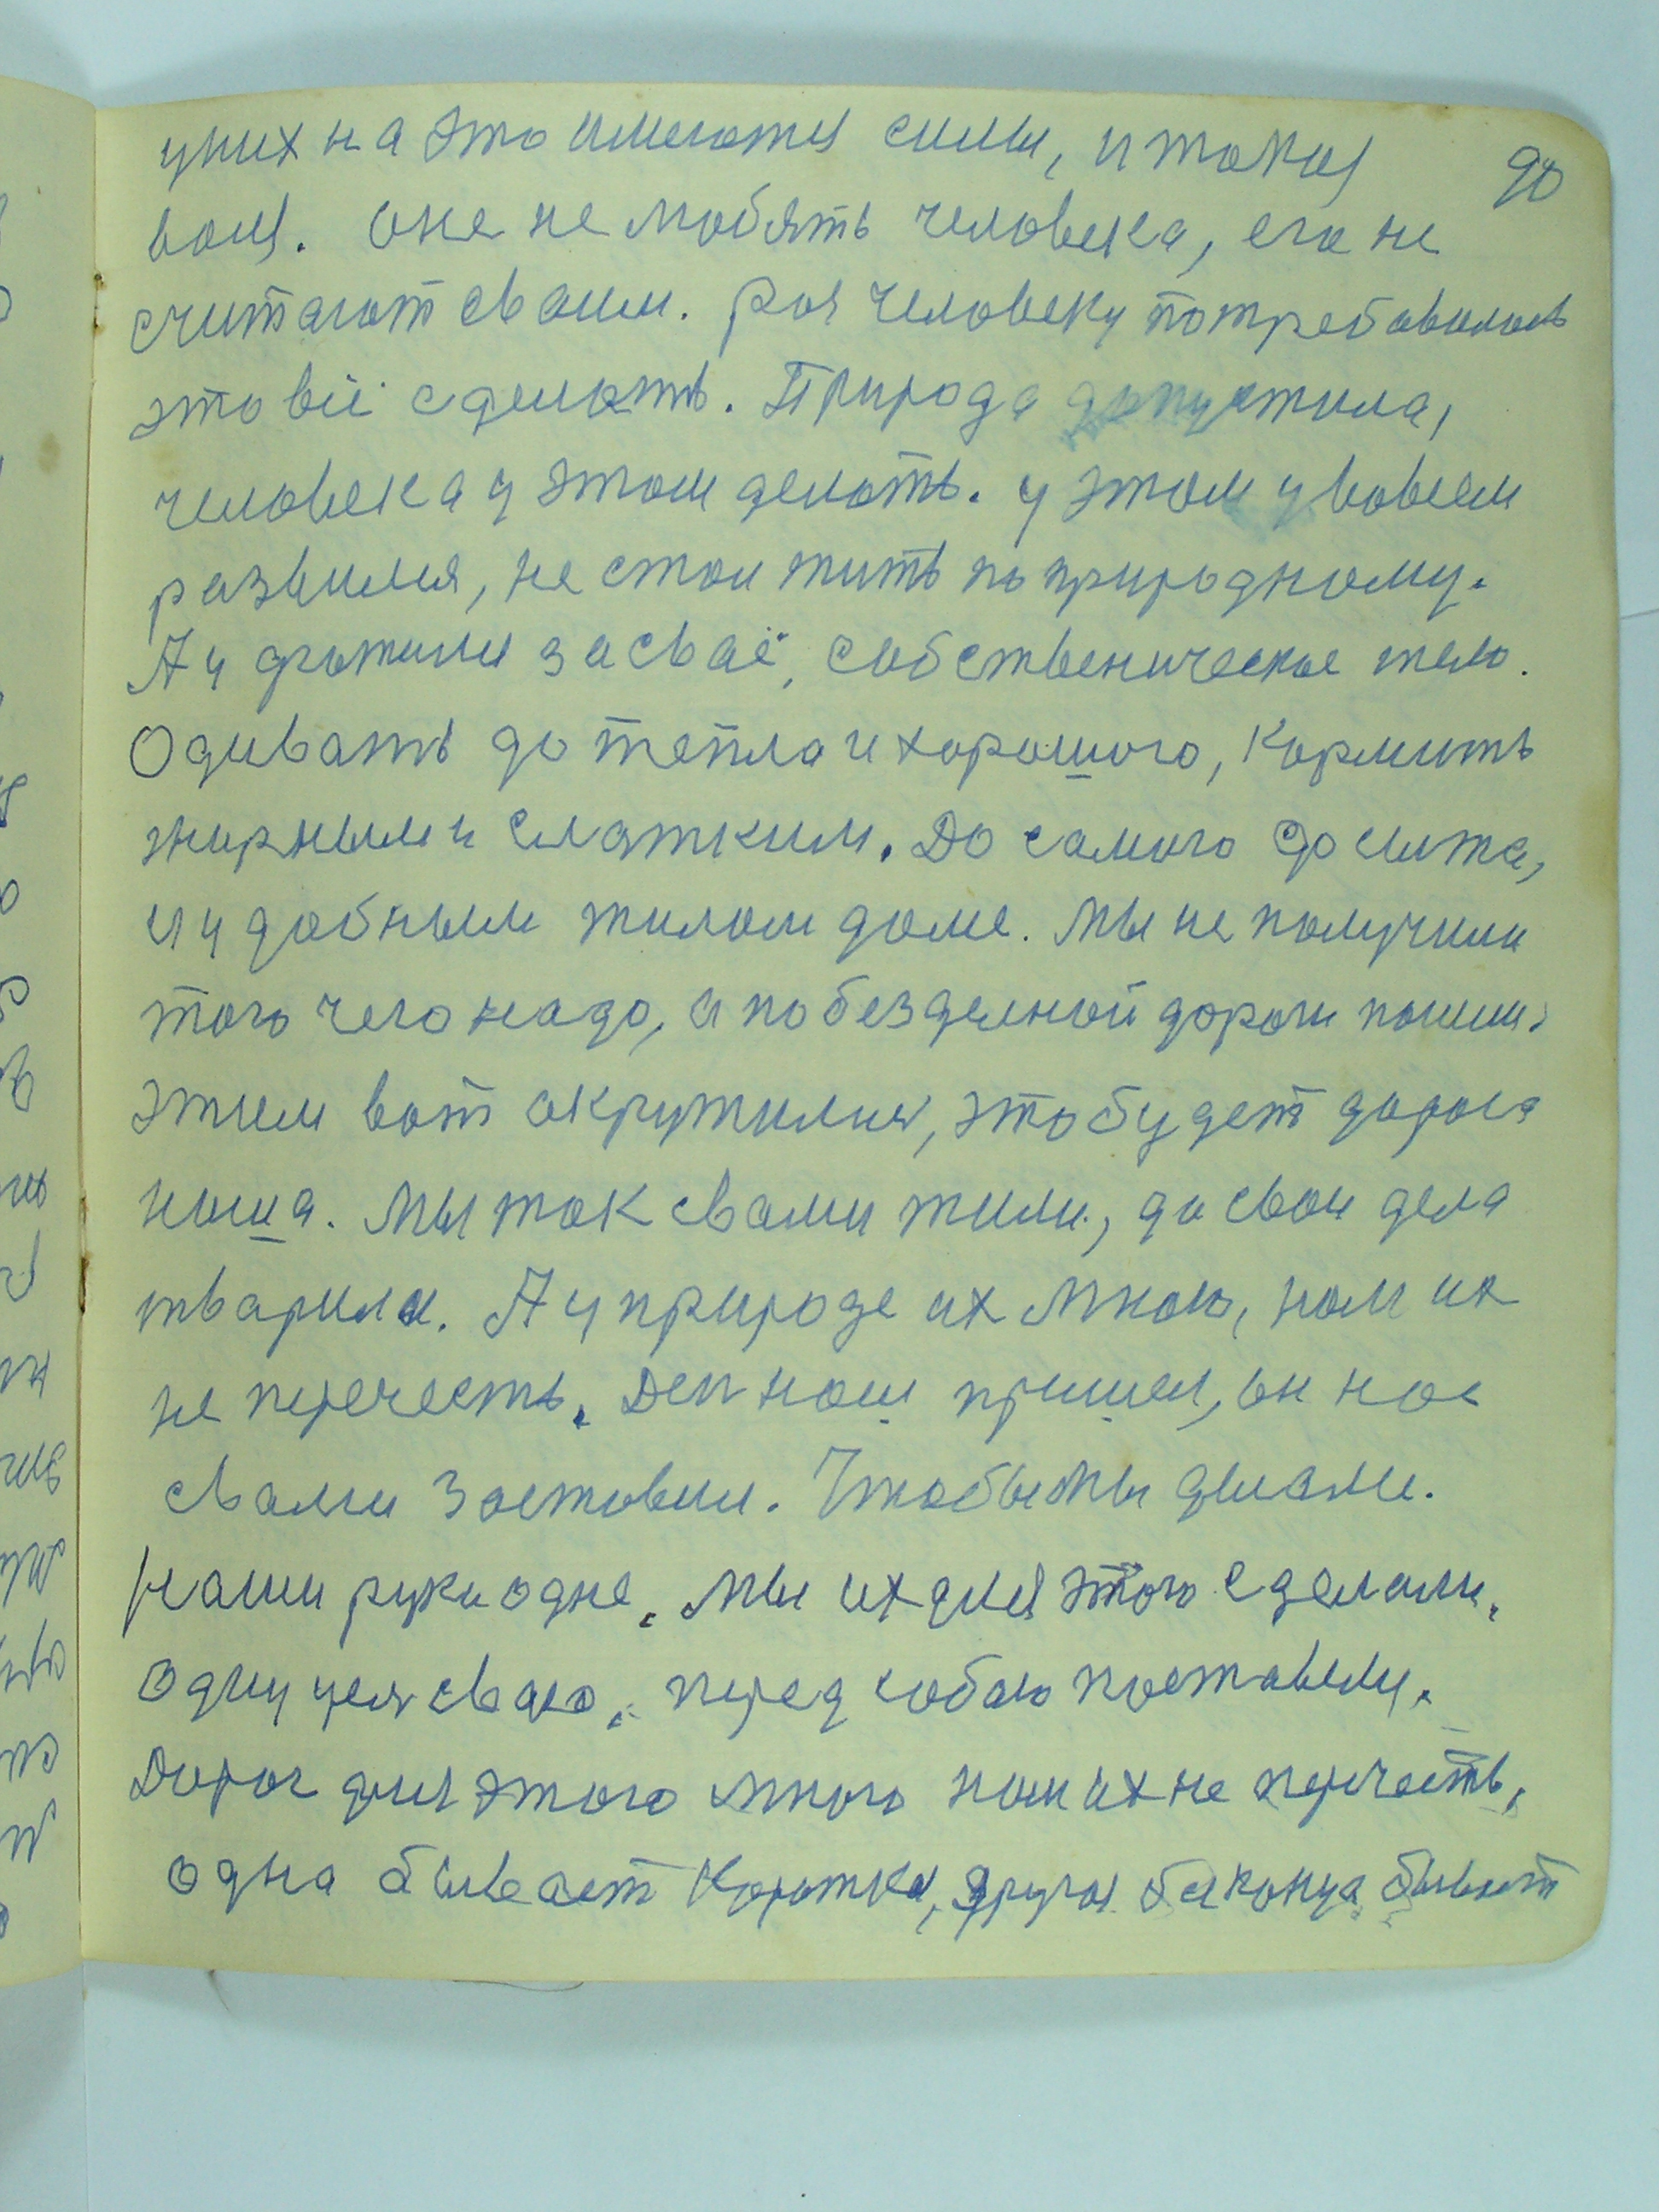 уних на это имеются силы, итакая
90
воля. оне не любять человека, его не
считают сваим. Рая человеку потребавилась
это всё сделать. Природа допустила,
человека у этом делать. у этом увовсем
развился, не стал жить поприродному.
А ухватили за сваё, собственическое тело.
Одивать до тепла ихорошого, кормить
жирным и слатким. До самого досыта,
иудобным жилом доме. Мы не получили
того чего надо, и побезделной дороги пошли.
этим вот окружился, это будет дорога
наша. Мы так свами жили, да свои дела
тварили. А уприроде их много, нам их
не перечесть. Ден наш пришел, он нас
свами заставил. Чтобы мы делали.
Наши руки одне. Мы их для этого сделали.
одну цель сваю, перед собаю поставели.
Дорог для этого много нам их не перчесть,
одна бывает коротка, другая бесконца бывает